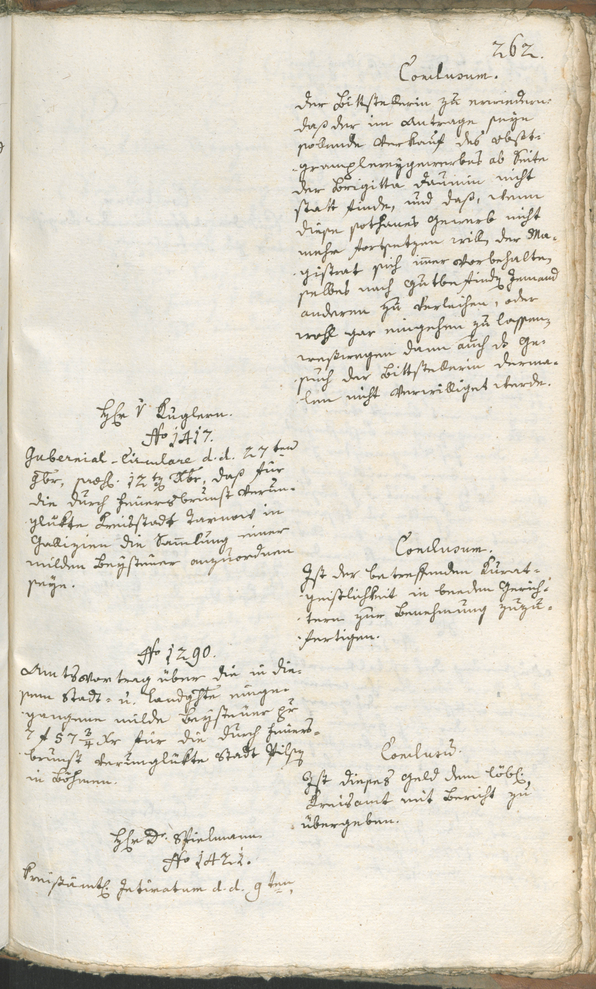 262.
Conclusum.
der Bittstellerin zu erwiedern:
daß der im Antrage seyn
sollende Verkauf des Obst:
gramplereygewerbes ab Seite
der Brigitta Daumin nicht
statt finde, und daß, wenn
diese sothanes Gewerb nicht
mehr fortsetzen will, der Ma-
gistrat sich imer vorbehalte,
selbes nach Gutbefinden Jemand
anderen zu verleihen, oder
wohl gar eingehen zu lassen,
weßwegen dann auch das Ge-
such der Bittstellerin derma-
len nicht verwilliget werde.
Hr v Kuglern.
No 1417.
Gubernial-Circulare d.d. 27ten
9br, præs. 12ten Xbr, daß für
die durch Feuersbrunst verun-
glükte Kreisstadt Tarnow in
Gallizien die Samlung einer
milden Beysteuer anzuordnen
seye.
Conclusum.
Ist der betreffenden Kurat-
geistlichkeit in beeden Gerich-
tern zur Benehmung zuzu-
fertigen.
No 1290.
Amtsvortrag über die in die-
sem Stadt- u. Landgchte einge-
gangene milde Beysteuer pr
7 f 57 3/4 Xr für die durch Feuers-
brunst verunglükte Stadt Pilsen
in Böhmen.
Conclusu.
Ist dieses Geld dem löbl.
Kreisamt mit Bericht zu
übergeben.
Hr Dr. Spielmann
No 1421.
Kreisämtl. Intimatum d.d. 9ten,